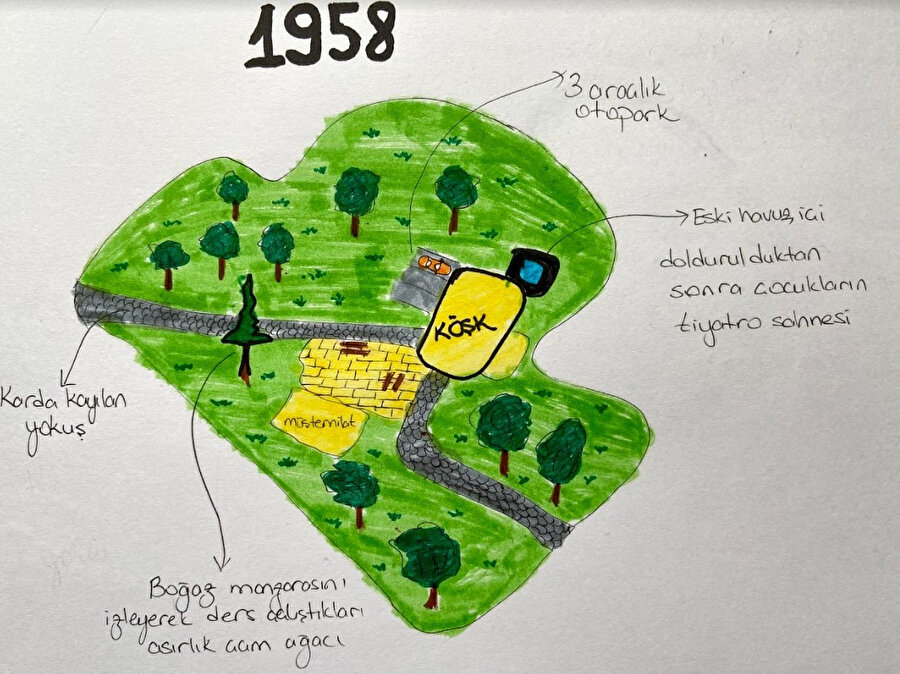 1958
3 aracılık
otopark
Eski havuz, içi
doldurulduktan
sonra çocukların
tiyatro sahnesi
KÖŞK
müştemilat
Karda kayılan
yokuş
Boğaz manzarasını
izleyerek ders çalıştıkları
asırlık çam ağacı